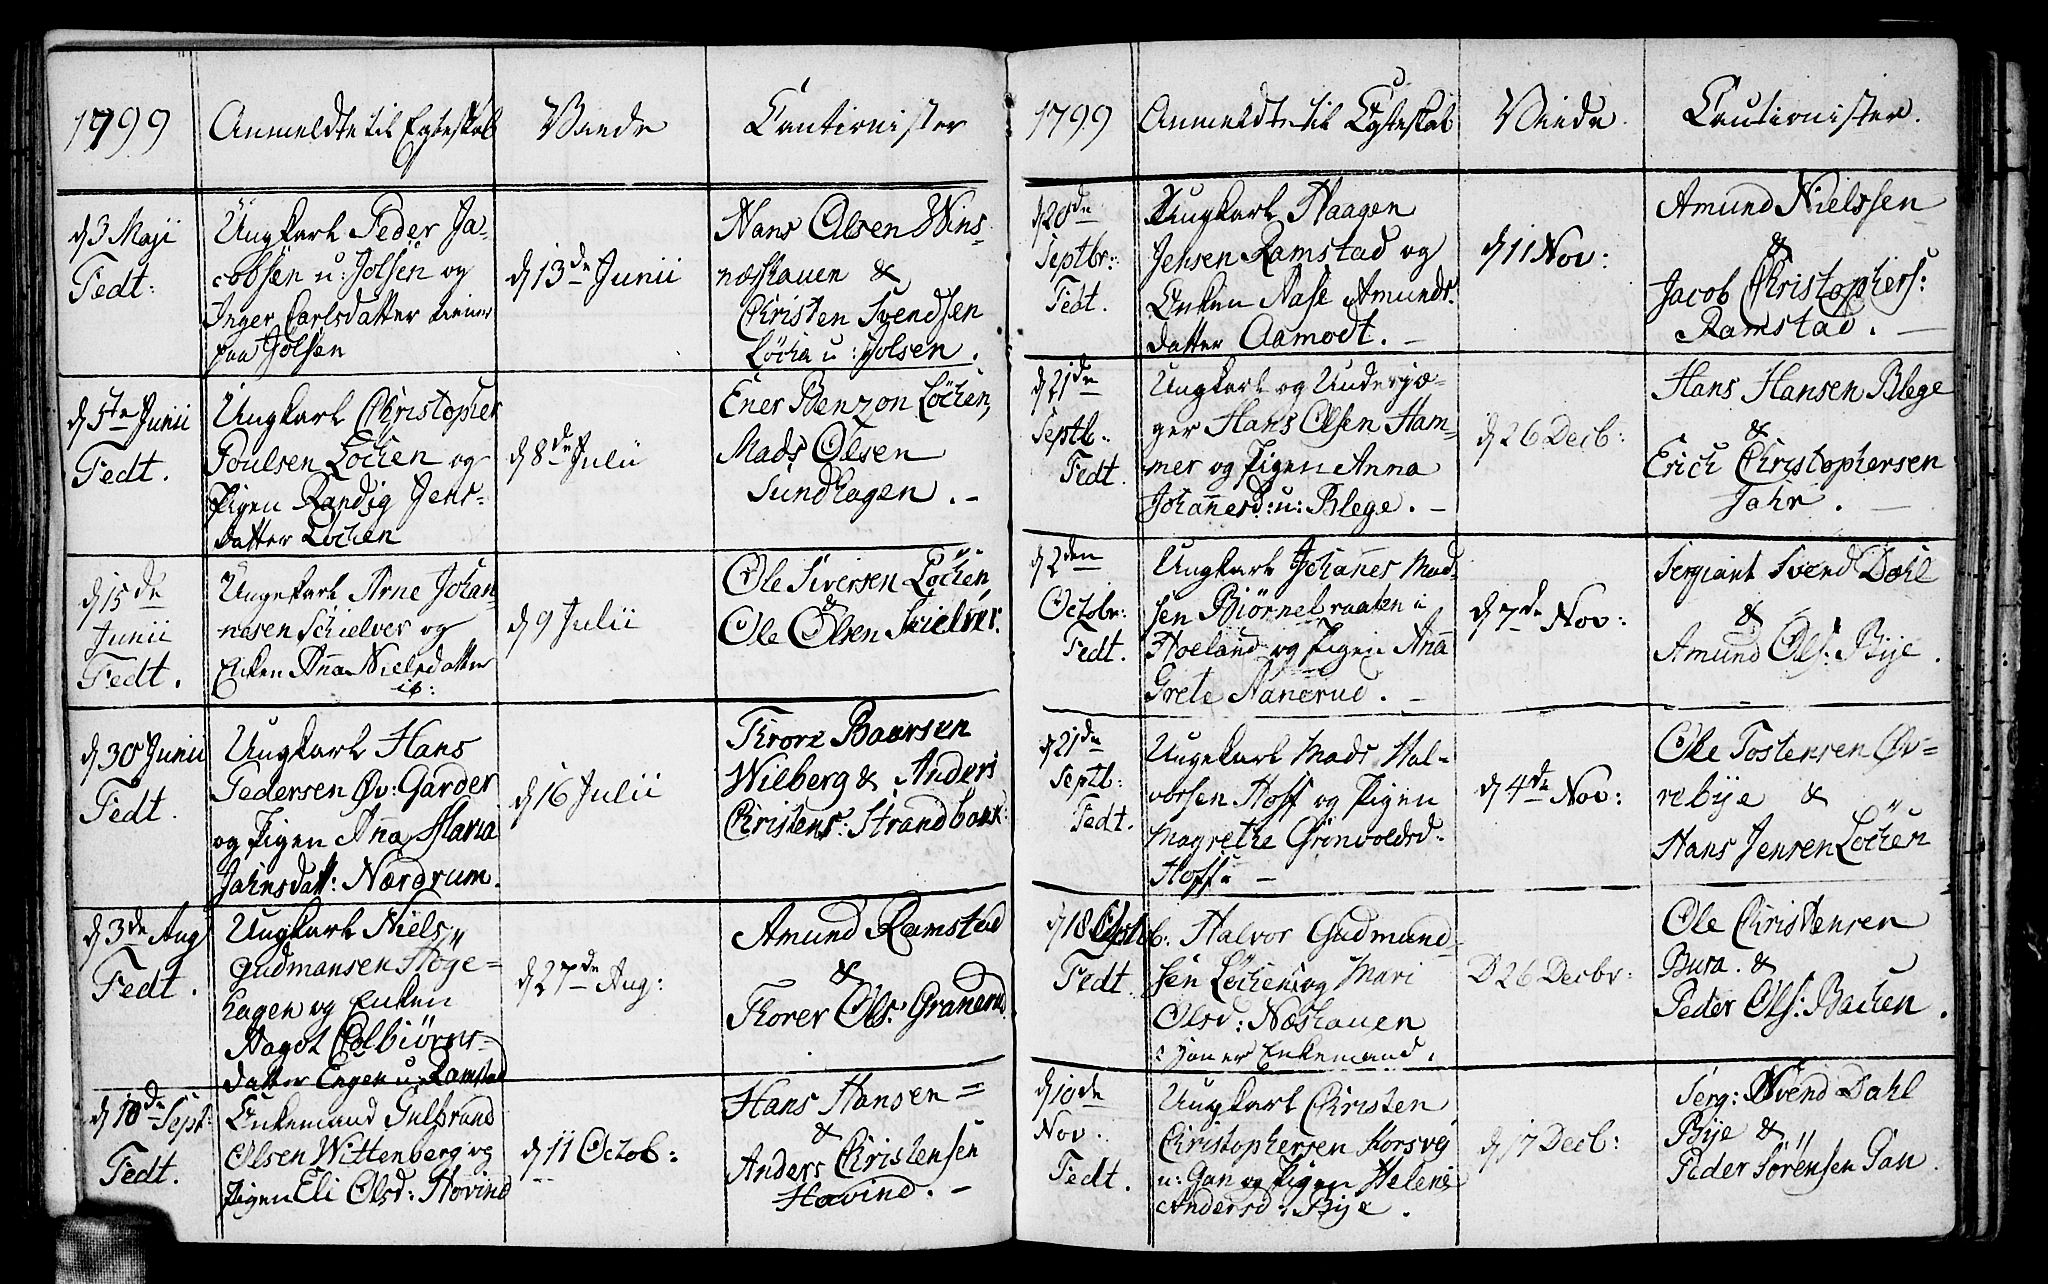 1799
Anmeldte til Egteskab
Viede
Cautionister
d 3 Maji
Fedt.
Ungkarl Peder Ja-
cobsen u: Jolsen og
Inger Carlsdatter tiener
paa Jolsen
d 13de Junii
Hans Olsen Wins-
næshauen &
Christen Svendsen
Løcha u: Jolsen.
d 5te Junii
Fedt.
Ungkarl Christopher
Poulsen Løchen og
Pigen Randig Jens-
datter Løchen
d 8de Julii
Ener Benzon Løchen,
Mads Olsen
Sundhagen. -
d 15de
Junii
Fedt.
Ungekarl Arne Johan-
nesen Schielver og
Enken Aña Nielsdatter
ib:
d 9 Julii
Ole Siversen Løchen
&
Ole Olsen Skielver.
d 30 Junii
Fedt.
Ungkarl Hans
Pedersen Øv: Garder
og Pigen Aña Maria
Jahnsdatt: Nordrum.
d 16 Julii
Throre Baarsen
Wilberg & Anders
Christens: Strandbakk:
d 3de Aug
Fedt.
Ungkarl Niels
Gudmansen Høge-
hagen og Enken
Aagot Colbiørns-
datter Engen u: Ramstad
d 27de Aug:
Amund Ramstad
&
Thorer Ols: Granerud
d 10de Sept:
Fedt.
Enkemand Gulbrand
Olsen Wittenberg og
Pigen Eli Olsd: Hovind
d 11 Octob:
Hans Hansen =
&
Anders Christensen
Hovind. -
1799
Anmeldte til Egteskab
Viede.
Cautionister.
d 20de
Septbr:
Fedt.
Ungkarl Haagen
Jensen Ramstad og
Enken Aase Amunds-
datter Aamodt. -
d 11 Nov:
Amund Nielssen
&
Jacob Christophers:
Ramstad. -
d 21de
Septb:
Fedt.
Ungkarl og Underjæ-
ger Hans Olsen Ham-
mer og Pigen Anna
Johañesd: u: Blege. -
d 26 Decb:
Hans Hansen Blege
&
Erich Christophersen
Jahr. -
d 2den
Octobr:
Fedt.
Ungkarl Johañes Mad-
sen Biørnelraaten i
Høeland og Pigen Aña
Grete Nanerud. -
d 7de Nov:
Sergiant Svend Dahl
&
Amund Ols: Bye.
d 21de
Septb:
Fedt.
Ungekarl Mads Hal-
vorsen Hoff og Pigen
Magrethe Grønvoldsd:
Hoff: -
d 4de Nov:
Ole Tostensen Øv-
rebye &
Hans Jensen Løchen
d 18 Octob:
Fedt
Halvor Gudmund-
sen Løchen og Mari
Olsd: Næshauen
: han er Enkemand.
D 26 Decbr:
Ole Christensen
Bura. &
Peder Ols: Bachen.
d 10de
Nov.
Fedt.
Ungkarl Christen
Christophersen Korsvej
u: Gan og Pigen Helene
Andersd: Bye.
d 17 Decb:
Serg: Svend Dahl
Bye &
Peder Sørensen Gan.